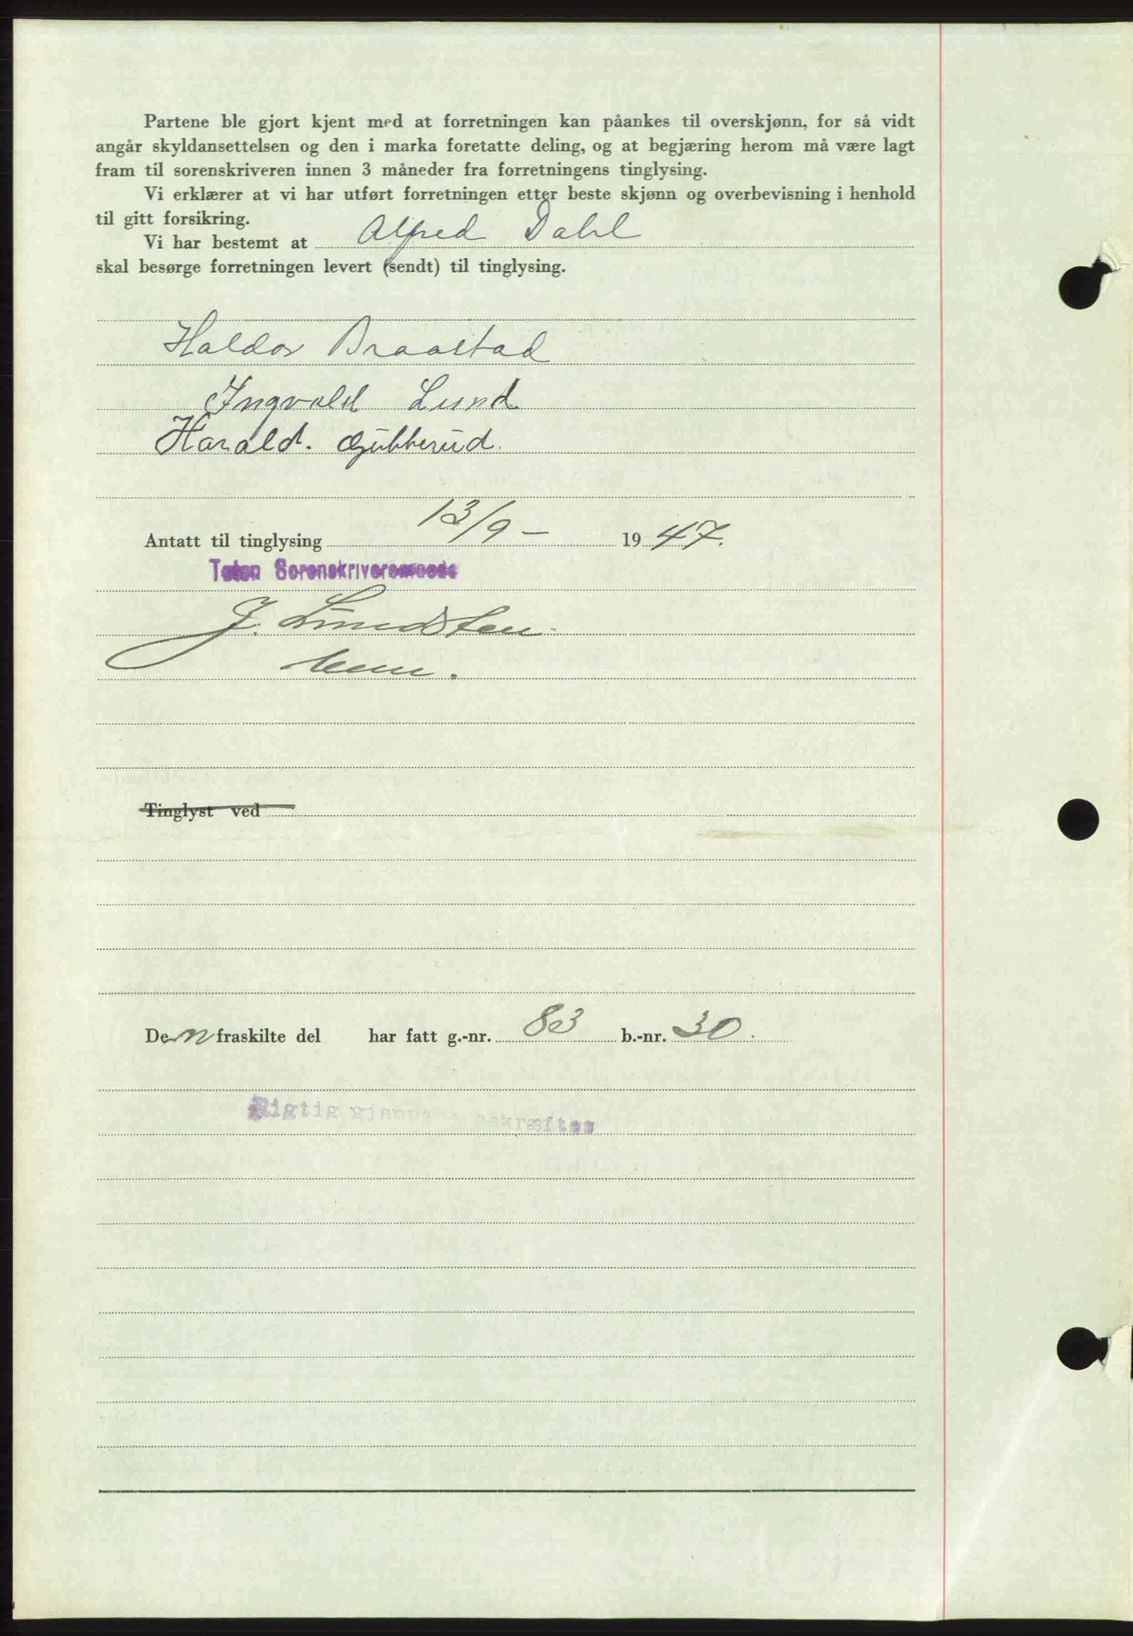 Partene ble gjort kjent med at forretningen kan påankes til overskjønn, for så vidt
angår skyldansettelsen og den i marka foretatte deling, og at begjæring herom må være lagt
fram til sorenskriveren innen 3 måneder fra forretningens tinglysing.
Vi erklærer at vi har utført forretningen etter beste skjønn og overbevisning i henhold
til gitt forsikring.
Vi har bestemt at Alfred Dahl
skal besørge forretningen levert (sendt) til tinglysing.
Haldor Braastad
Ingvald Lund
Harald. Gubberud.
Antatt til tinglysing 13/9 - 1947.
Toten Sorenskriverembede
J. Lundsten
Tinglyst ved
Den fraskilte del har fatt g.-nr. 83 b.-nr. 30.
Rigtig gjenpart bekræftes